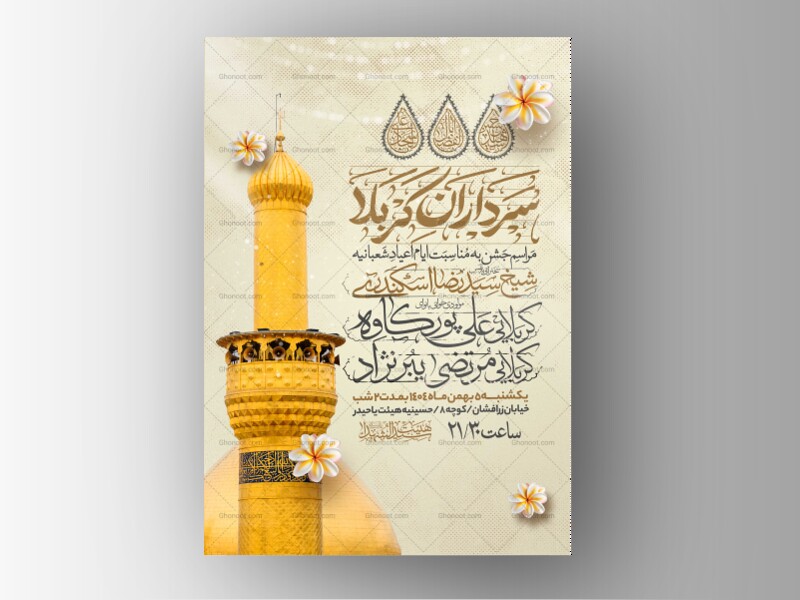 سرداران کربلا
مراسم جشن به مناسبت ایام اعیاد شعبانیه
شیخ سیدرضا اسکندری
کربلایی علی پورکاوه
کربلایی مرتضی ببرنژاد
یکشنبه ۵ بهمن ماه ۱۴۰۴ بمدت ۲ شب
خیابان زرافشان / کوچه ۸ / حسینیه هیئت یاحیدر
ساعت ۲۱/۳۰
Ghonoot.com